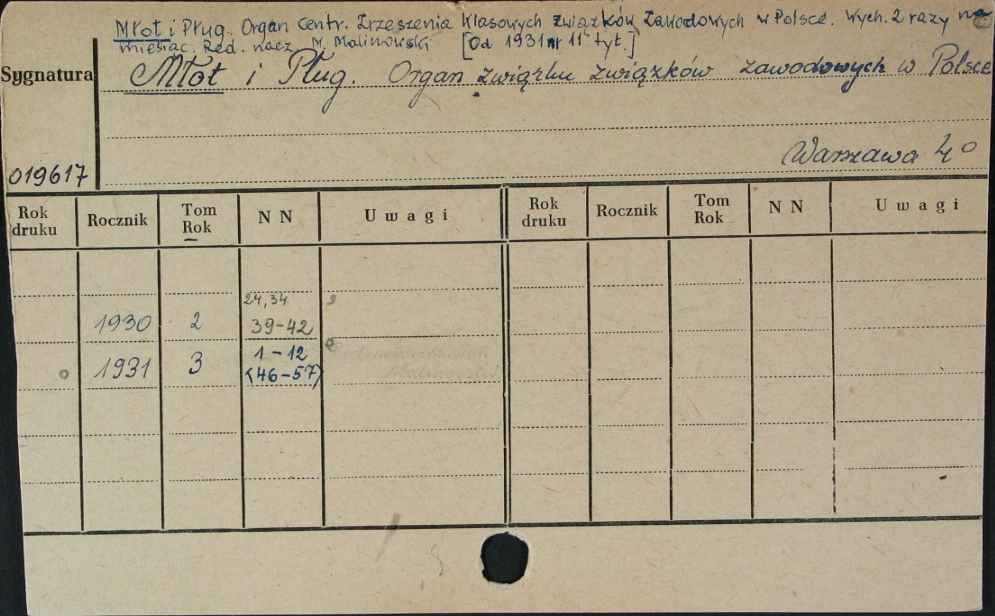 Młot i Pług. Organ Centr. Zrzeszenia Klasowych Związków Zawodowych w Polsce. Wych. 2 razy na
miesiąc. Red. nacz. M. Malinowski [Od 1931 nr 11 tyt.]
Sygnatura Młot i Pług. Organ związku związków zawodowych w Polsce
Warszawa 4°
019617
Rok druku Rocznik Tom Rok N N Uwagi Rok druku Rocznik Tom Rok N N Uwagi
24,34
1930 2 39-42
1931 3 1-12
(46-57)